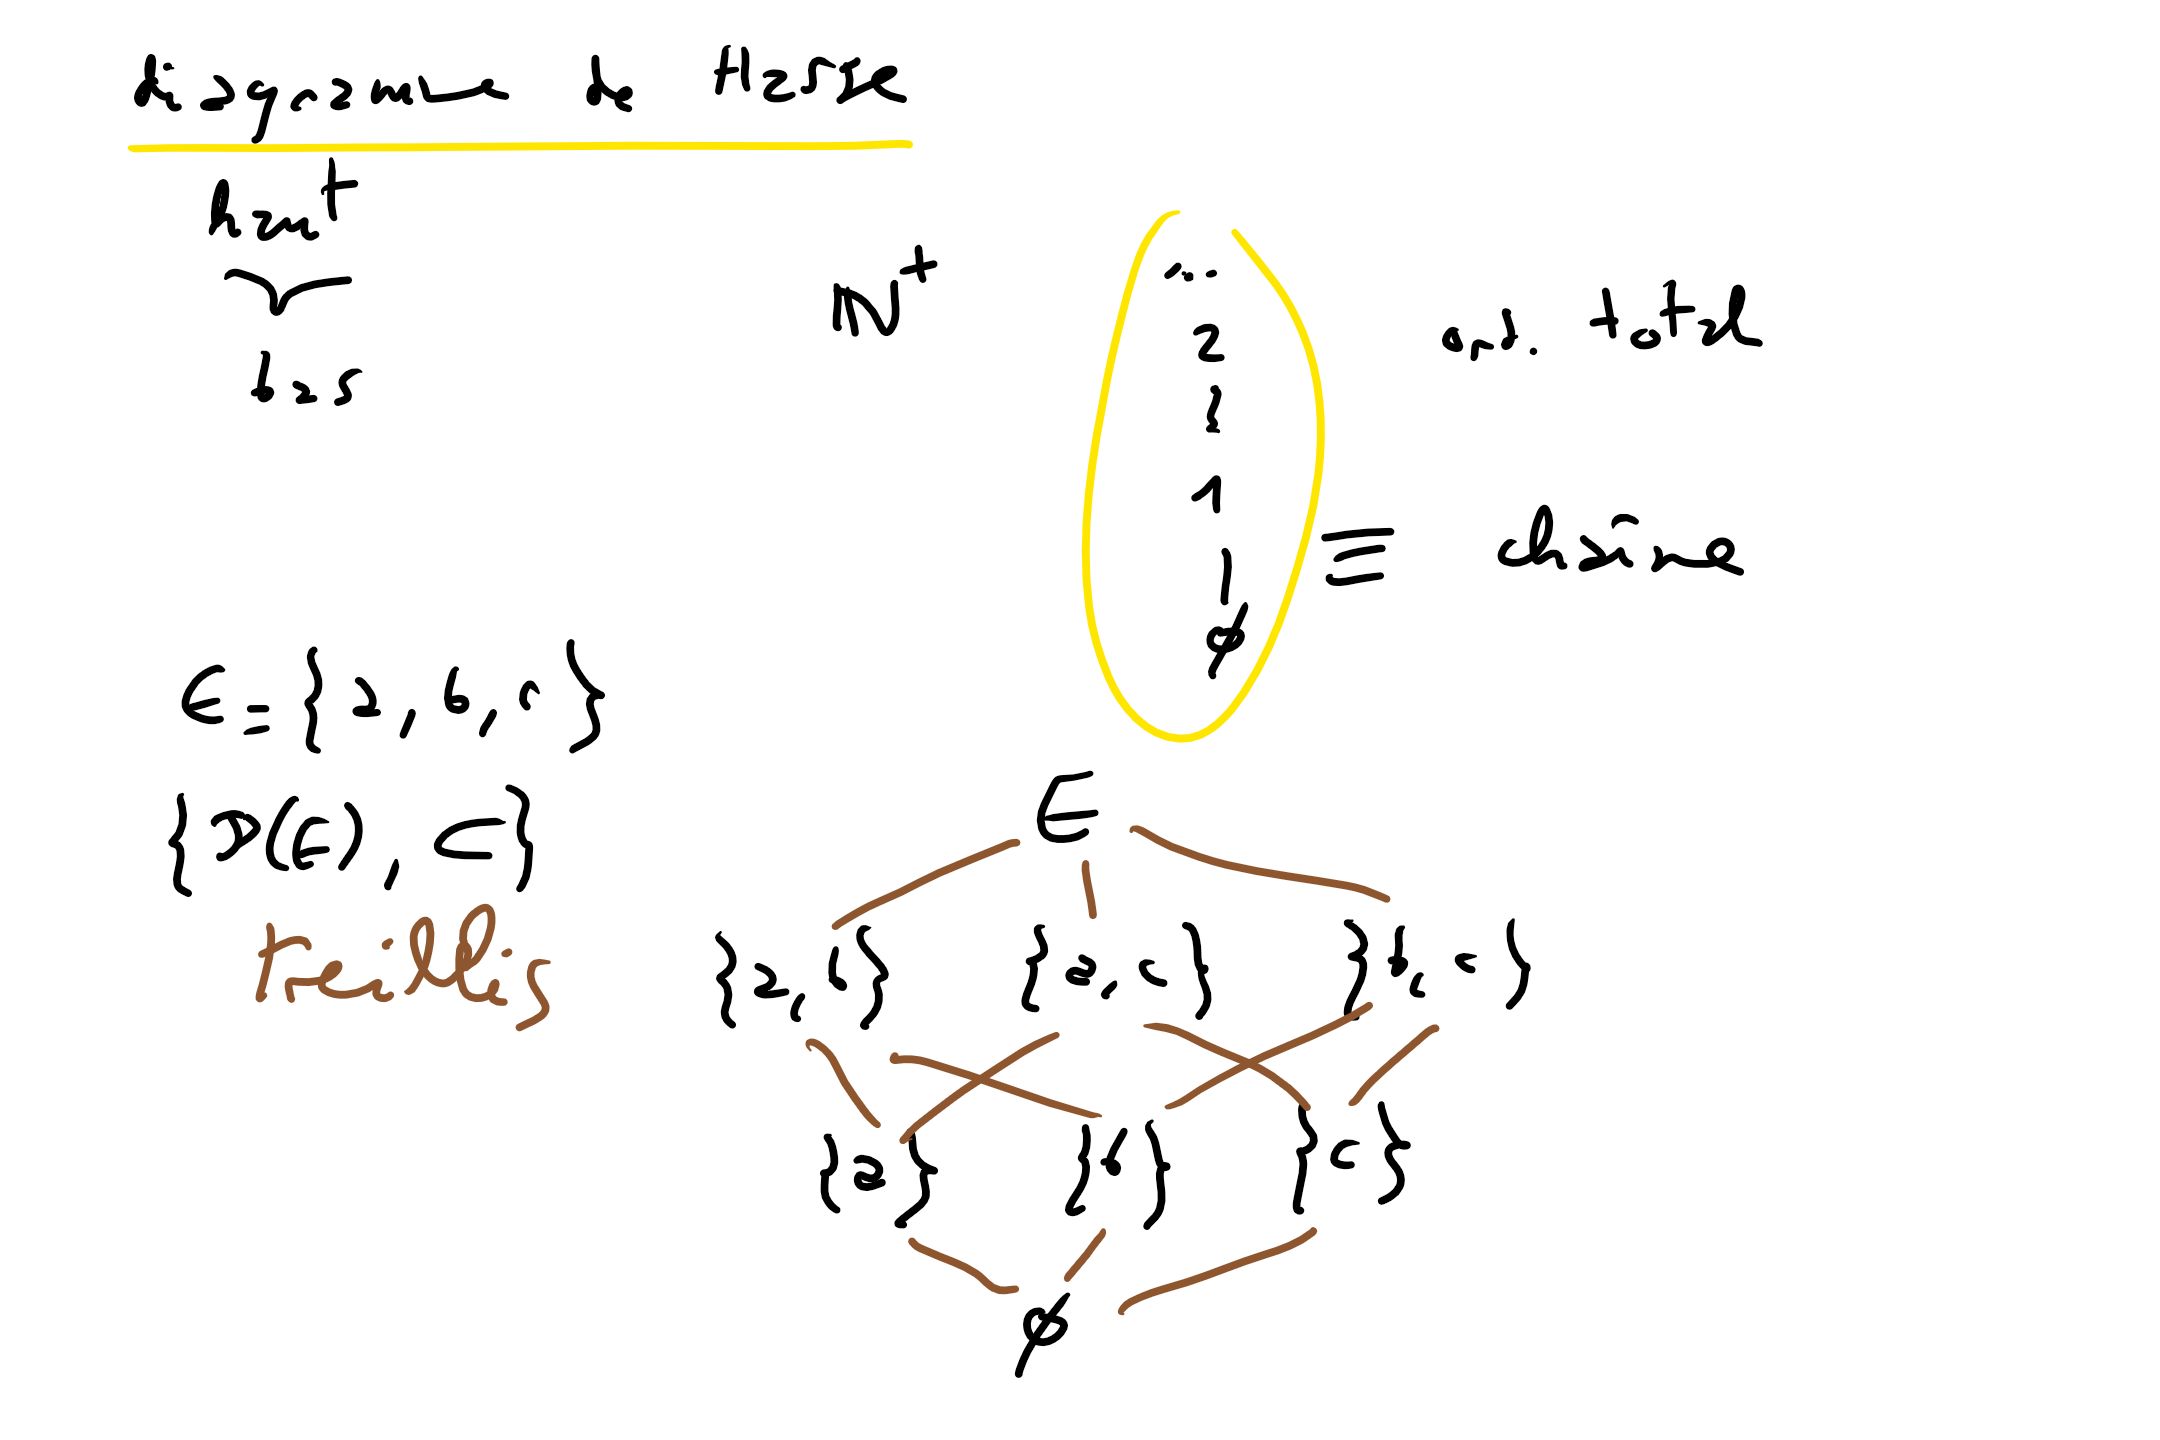 diagramme de Hasse
haut
bas
ℕ⁺
...
2
1
∅
ord. total
≡ chaîne
E = {a, b, c}
{P(E), ⊂}
treillis
E
{a, b} {a, c} {b, c}
{a} {b} {c}
∅